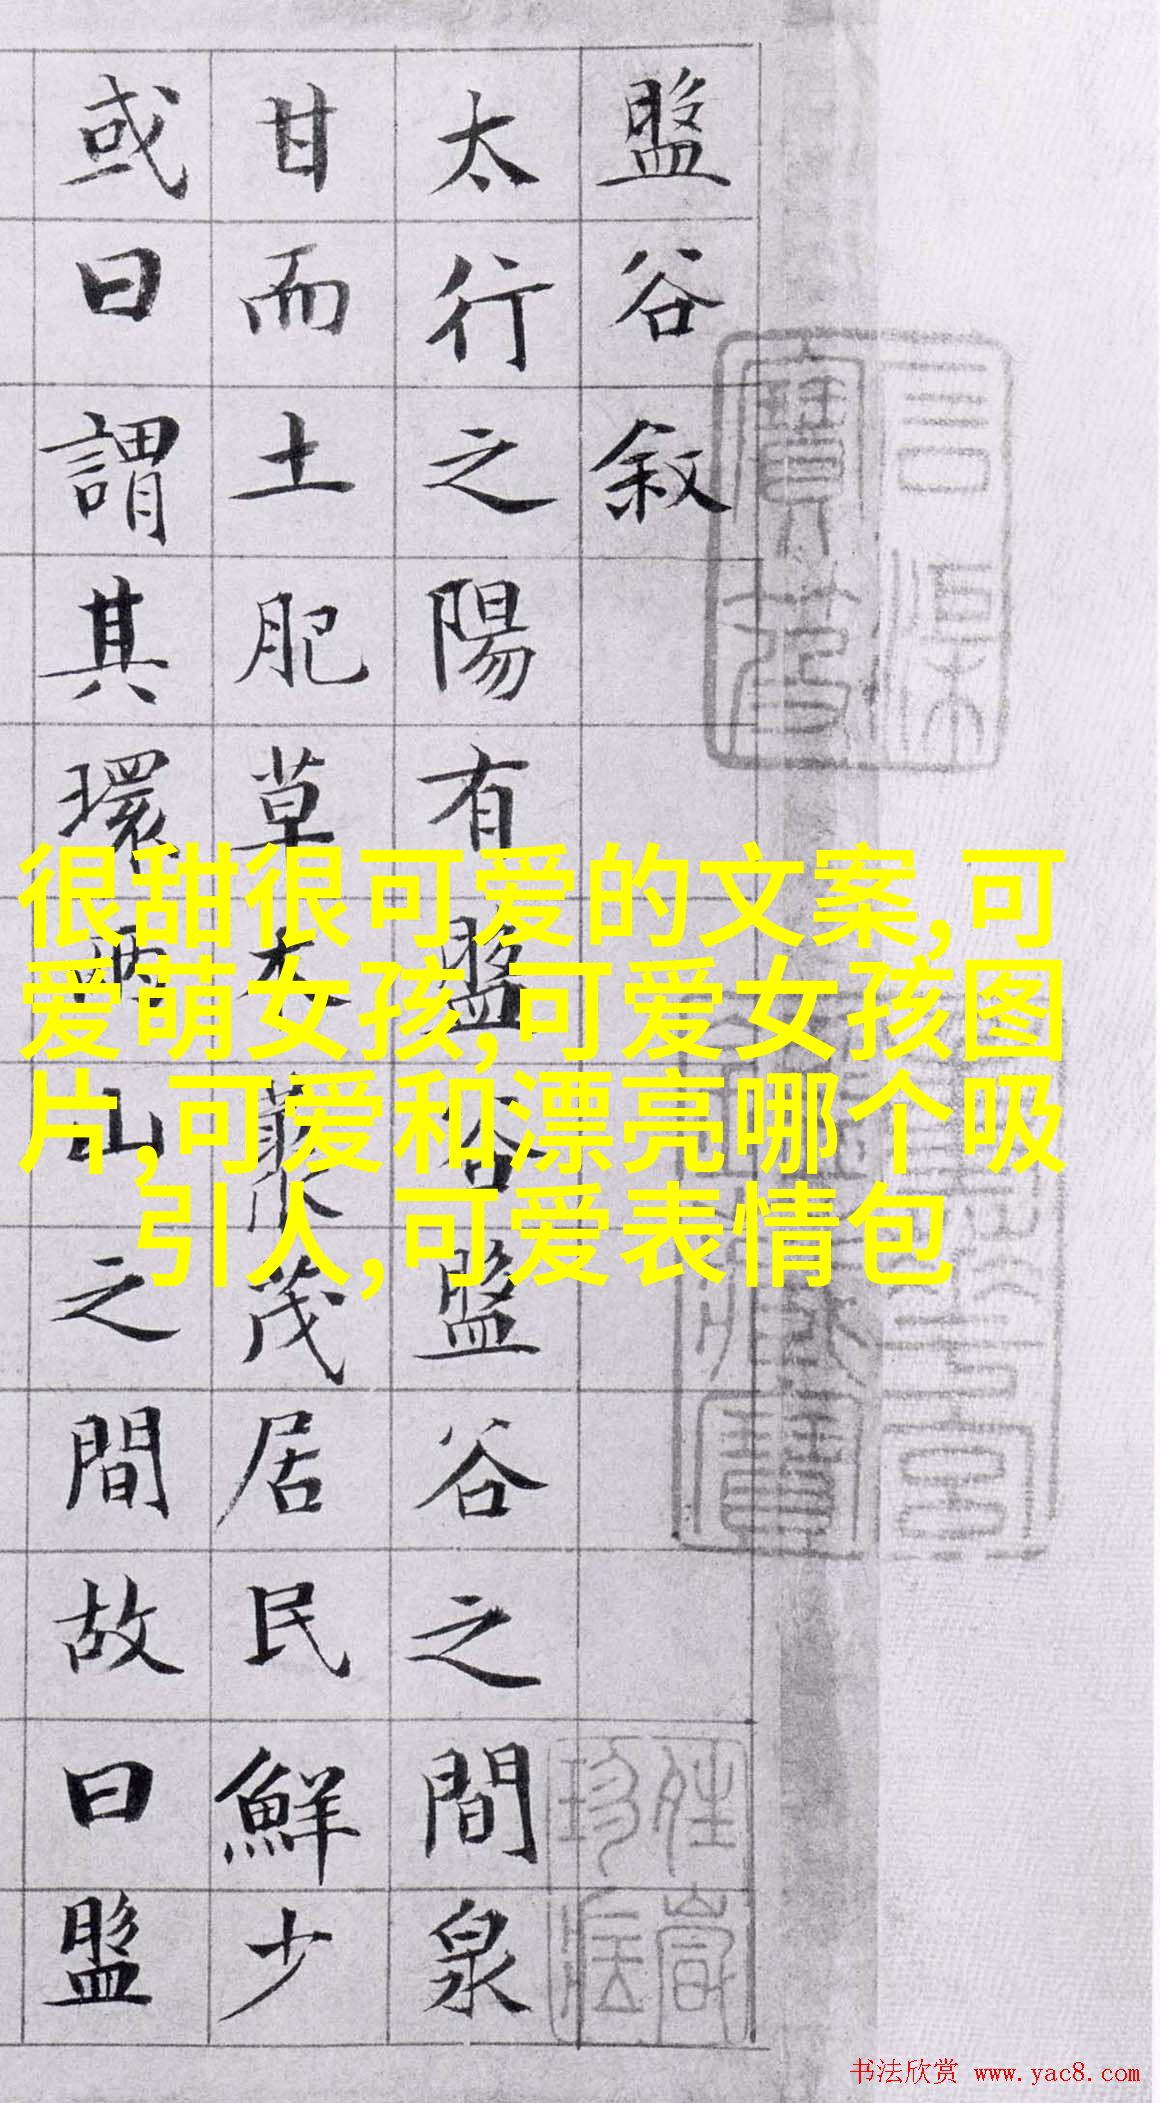 盤谷敘
太行之陽有盤谷盤谷之間泉
甘而土肥草木藂茂居民鮮少
或曰謂其環兩山之間故曰盤
很甜很可爱的文案,可
爱萌女孩,可爱女孩图
片,可爱和漂亮哪个吸
引人,可爱表情包
书法欣赏 www.yac8.com